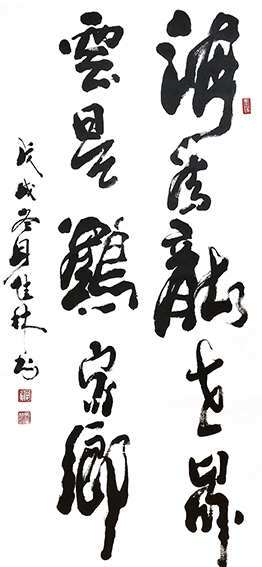 海為龍世界
雲是鶴家鄉
戊戌冬月佳林书